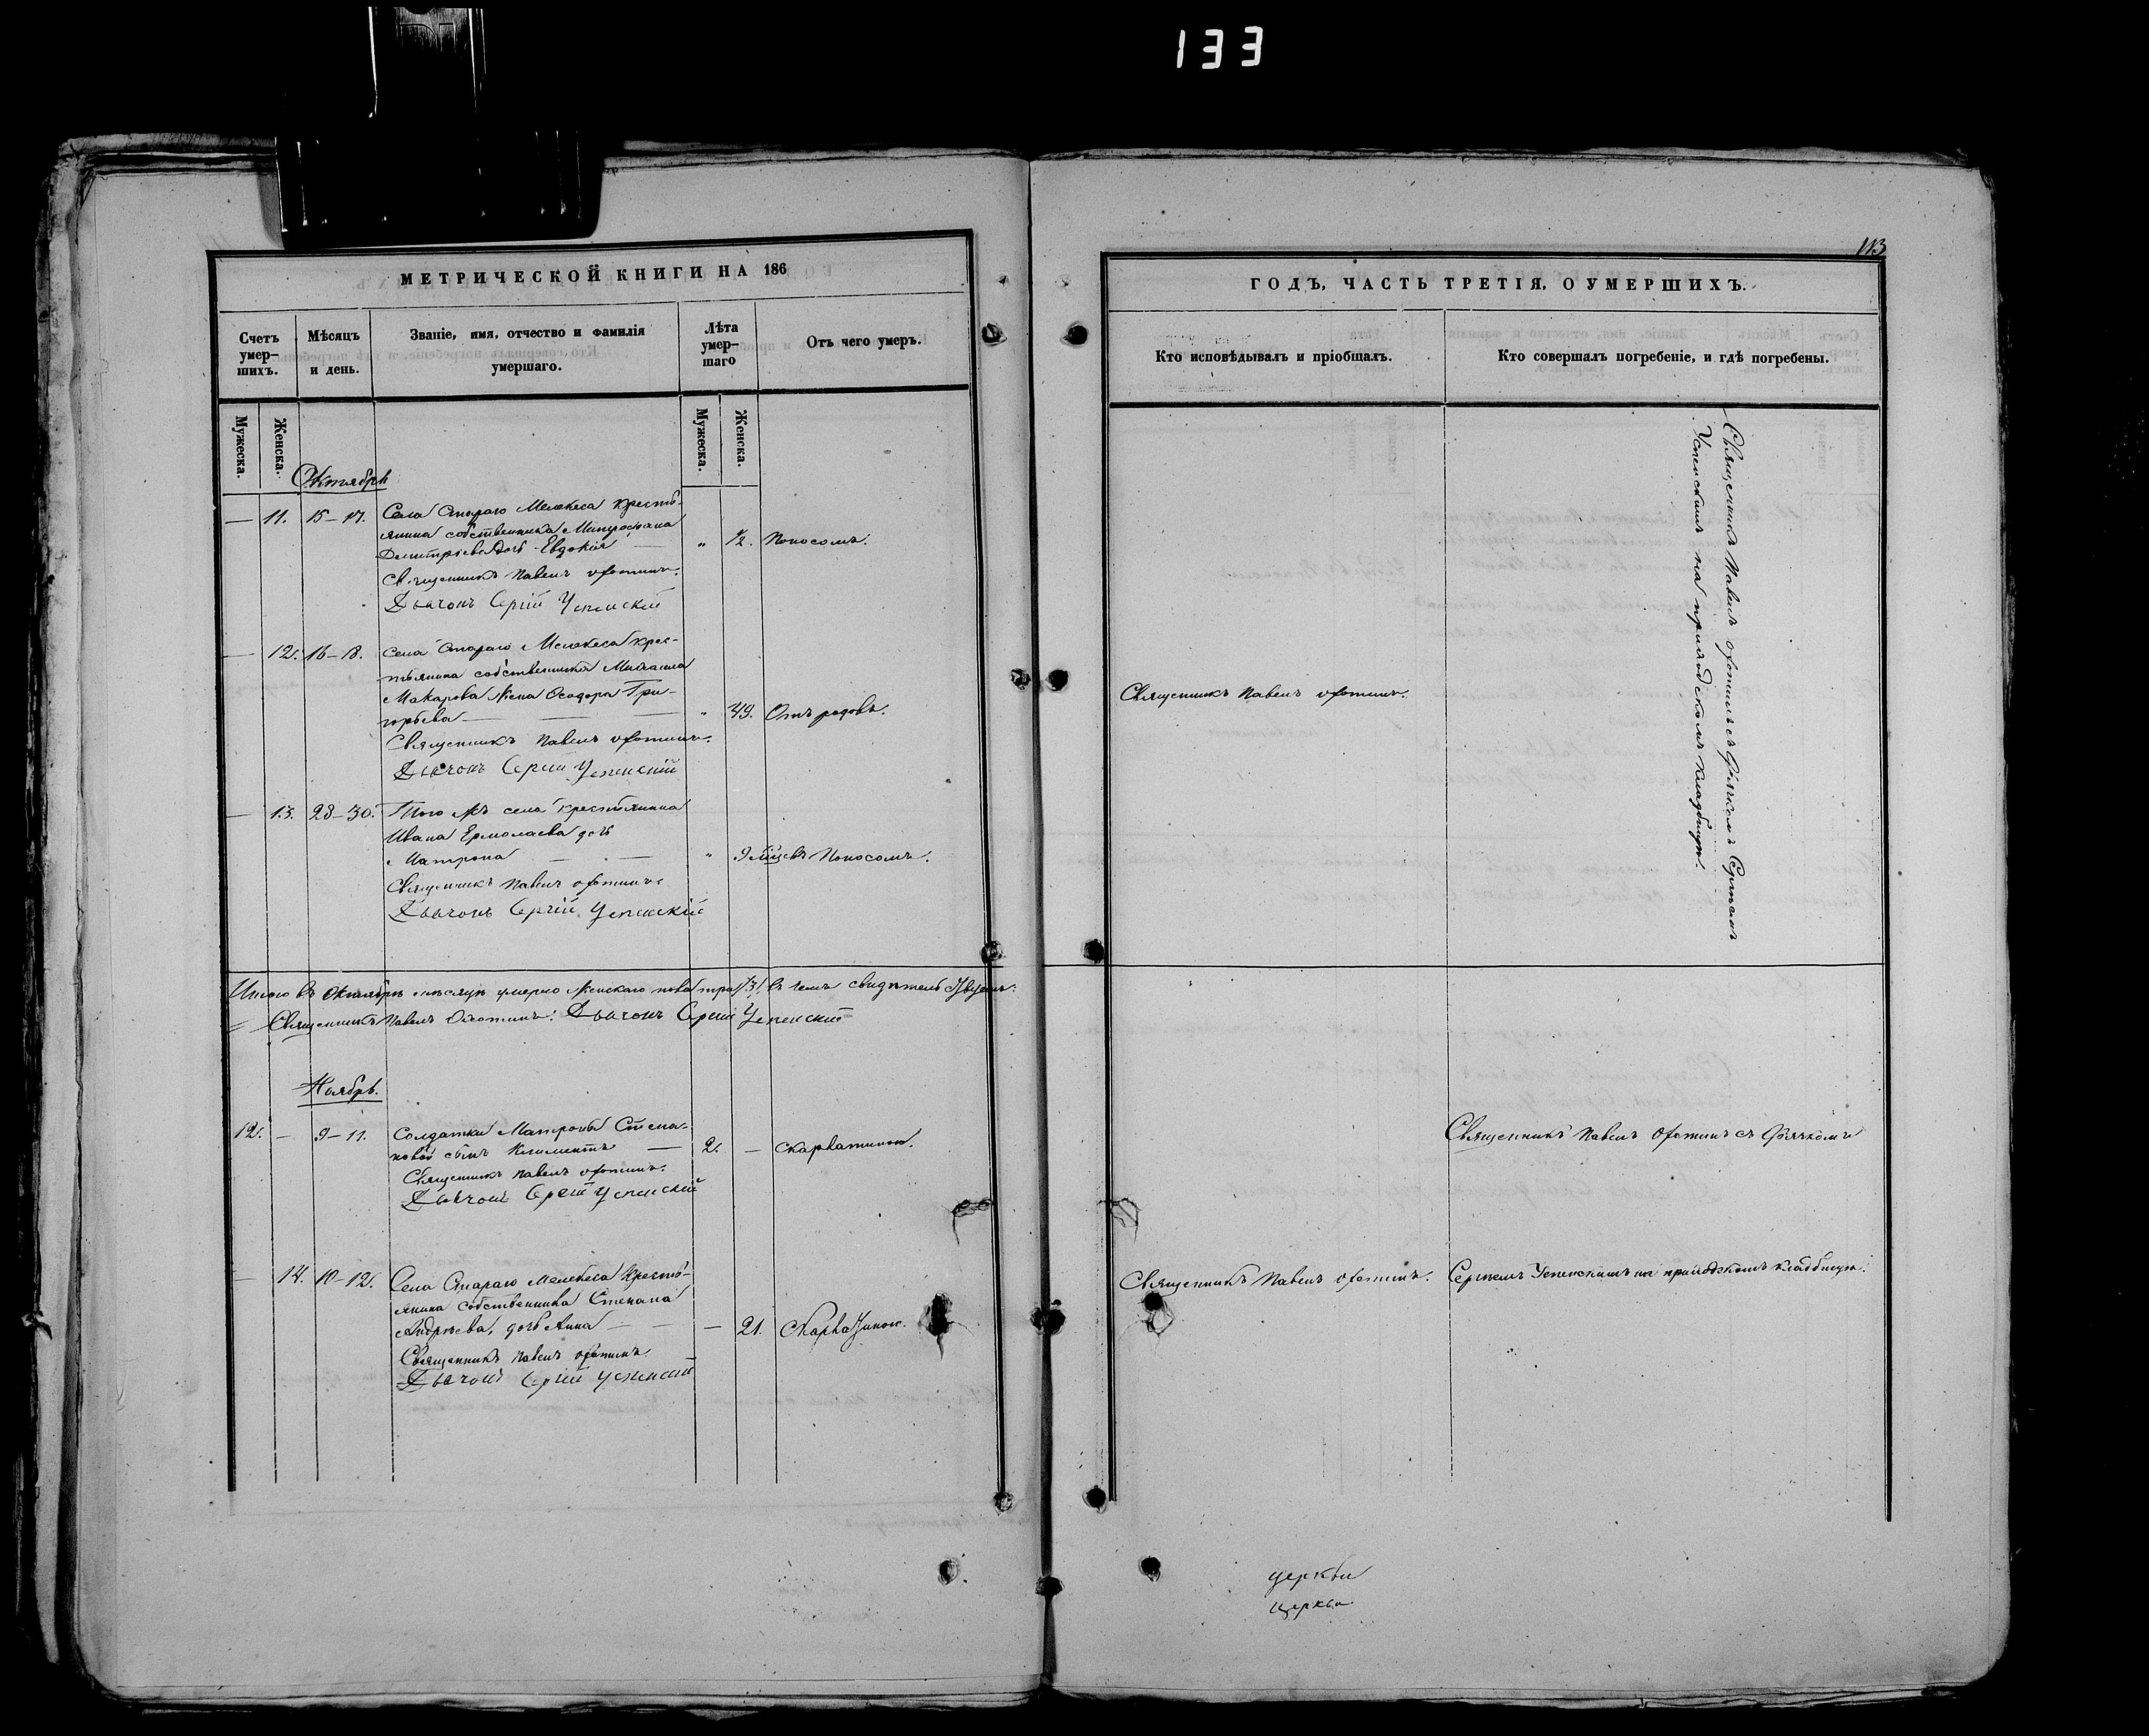 133
МЕТРИЧЕСКОЙ КНИГИ НА 186
Счетъ умер-шихъ.
Мѣсяцъ и день.
Званіе, имя, отчество и фамилія умершаго.
Лѣта умер-шаго
Отъ чего умеръ.
Мужеска.
Женска.
Мужеска.
Женска.
Октябрь
11. 15–17. Села Стараго Мелекеса кресть-
янина собственника Митрофана
Димитріева дочь Евдокія — „ 1/2. Поносомъ.
Священникъ Павелъ Охотинъ.
Дьячокъ Сергій Успенскій
12. 16–18. Села Стараго Мелекеса крес-
тьянина собственника Михаила
Макарова жена Ѳеодора Гри-
горьева — „ 49. Отъ родовъ.
Священникъ Павелъ Охотинъ.
Дьячокъ Сергій Успенскій
13. 28–30. Того жъ села крестьянина
Ивана Ермолаева дочь
Матрона — „ 9 Поносомъ.
Священникъ Павелъ Охотинъ
Дьячокъ Сергій Успенскій
Итого въ Октябрѣ мѣсяцѣ умерло женскаго пола три /3/ въ чемъ
Священникъ Павелъ Охотинъ. Дьячокъ Сергій Успенскій
Ноябрь.
12. — 9–11. Солдатки Матроны Степа-
новой сынъ Климентъ — 2. — Скарлатиною.
Священникъ Павелъ Охотинъ.
Дьячокъ Сергій Успенскій
— 14. 10–12. Села Стараго Мелекеса кресть-
янина собственника Степана
Андреева, дочь Анна — — 21.
Священникъ Павелъ Охотинъ.
Дьячокъ Сергій Успенскій
113
ГОДЪ, ЧАСТЬ ТРЕТІЯ, О УМЕРШИХЪ.
Кто исповѣдывалъ и пріобщалъ.
Кто совершалъ погребеніе, и гдѣ погребены.
Священникъ Павелъ Охотинъ съ Дьячкомъ Сергіемъ
Успенскимъ на приходскомъ кладбищѣ.
Священникъ Павелъ Охотинъ.
Священникъ Павелъ Охотинъ съ Дьячкомъ
Священникъ Павелъ Охотинъ.
Сергіемъ Успенскимъ на приходскомъ кладбищѣ.
церкви
церкви